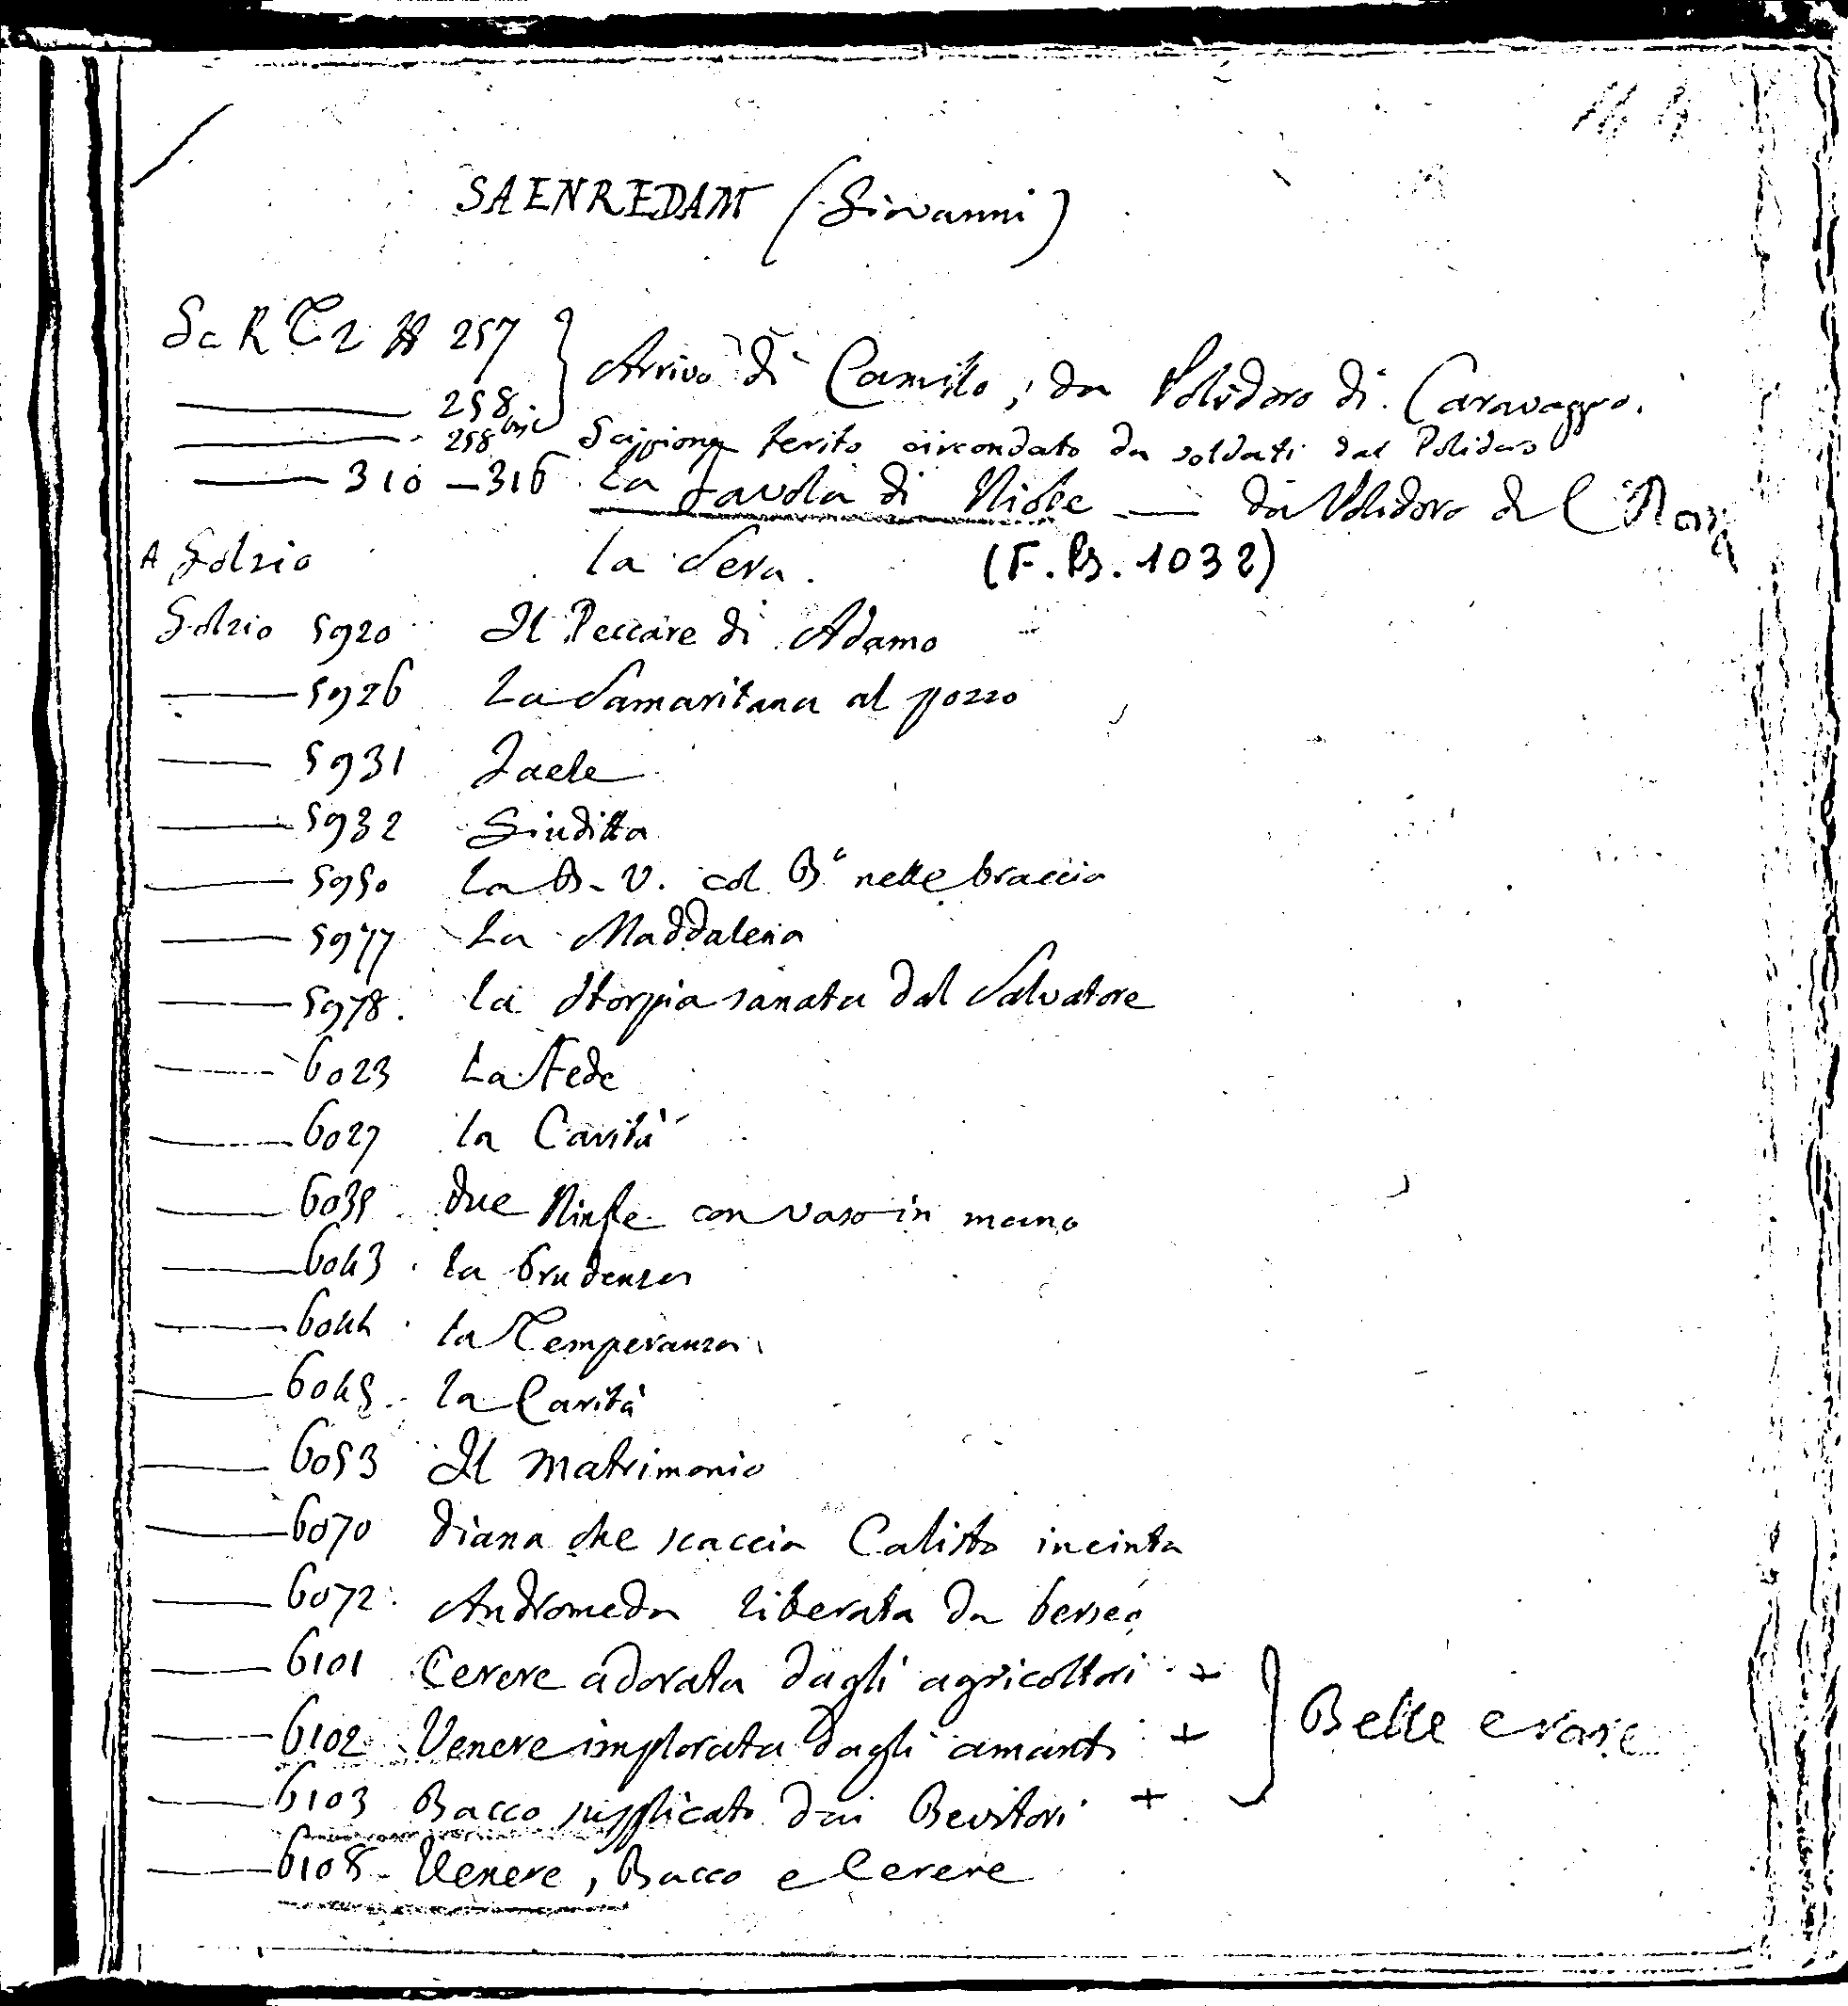 SAENREDAM (Giovanni)
Sc R T2 # 257
258 } Arrivo di Camillo, da Polidoro di Caravaggio.
258 bis Scipione ferito circondato da soldati dal Polidoro
310 - 316 La favola di Niobe — da Polidoro
A Golzio la Sera. (F. B. 1032)
Golzio 5920 Il Peccare di Adamo
5926 La Samaritana al pozzo
5931 Jaele
5932 Giuditta
5950 La B. V. col B.º nelle braccia
5977 La Maddalena
5978. la Storpia sanata dal Salvatore
6023 La Fede
6027 la Carità
6035 due Ninfe con vaso in mano
6043 la Prudenza
6044 la Temperanza
6045 la Carità
6053 Il Matrimonio
6070 Diana che scaccia Calisto incinta
6072. Andromeda liberata da Perseo
6101 Cerere adorata dagli agricoltori +
6102 Venere implorata dagli amanti + } Belle e rare
6103 Bacco supplicato dai Bevitori +
6108 Venere, Bacco e Cerere